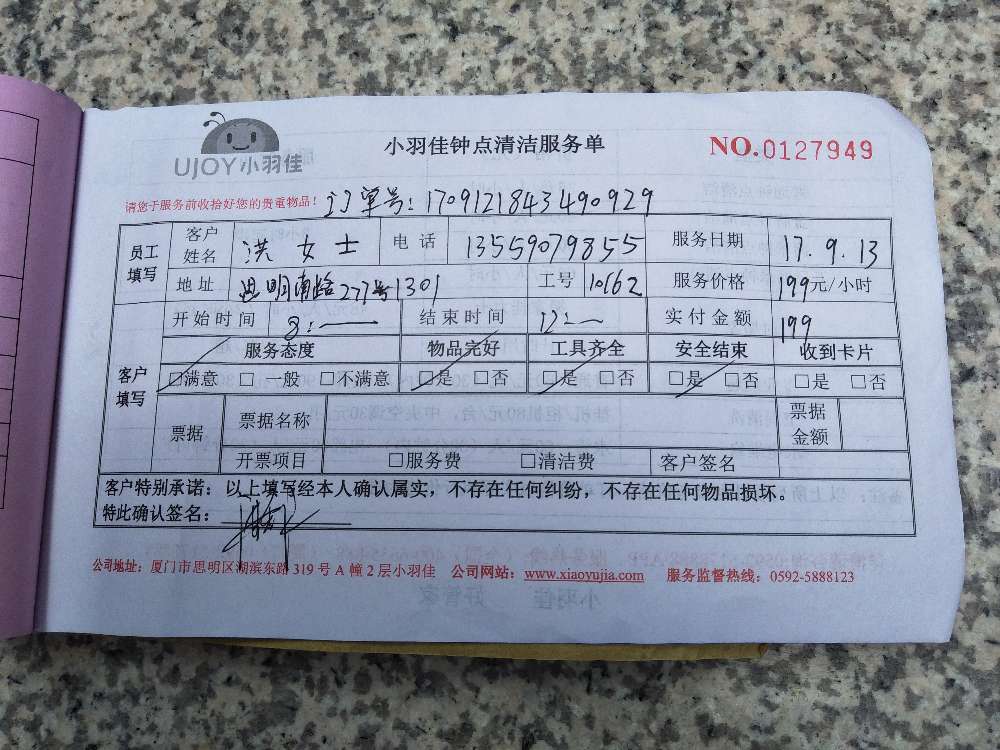 UJOY小羽佳
小羽佳钟点清洁服务单
NO.0127949
请您于服务前收拾好您的贵重物品！ 订单号：1709121843490929
员工填写 客户姓名 洪女士 电话 13559079855 服务日期 17.9.13
地址 思明南路277号1301 工号 10662 服务价格 199元/小时
客户填写 开始时间 8:— 结束时间 12:— 实付金额 199
服务态度 物品完好 工具齐全 安全结束 收到卡片
□满意 □一般 □不满意 □是 □否 □是 □否 □是 □否 □是 □否
票据 票据名称 票据金额
开票项目 □服务费 □清洁费 客户签名
客户特别承诺：以上填写经本人确认属实，不存在任何纠纷，不存在任何物品损坏。
特此确认签名：
公司地址：厦门市思明区湖滨东路319号A幢2层小羽佳 公司网站：www.xiaoyujia.com 服务监督热线：0592-5888123